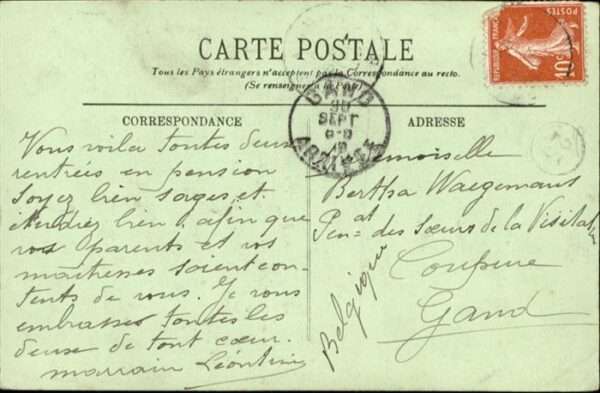 CARTE POSTALE
Tous les Pays étrangers n'acceptent pas la Correspondance au recto.
(Se renseigner à la Poste)
POSTES
REPUBLIQUE FRANÇAISE
10c
GAND
30
SEPT
CORRESPONDANCE
Vous voila toutes deux
rentrées en pension
Soyez bien sages et
étudiez bien, afin que
vos parents et vos
maîtresses soient con-
tents de vous. Je vous
embrasse toutes les
deux de tout cœur.
marraine Léontine
ADRESSE
Mademoiselle
Bertha Waegemans
Pen at des Sœurs de la Visitation
Coupure
Gand
Belgique